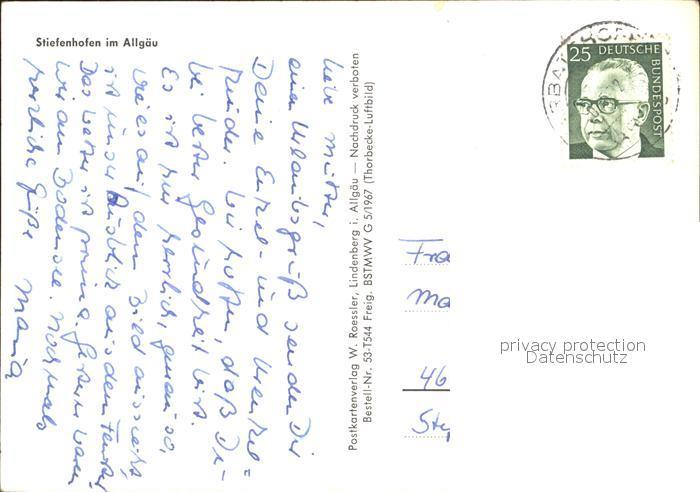 Stiefenhofen im Allgäu
Liebe Mutter,
einen Urlaubsgruß senden Dir
Deine Enkel- und Urenkel-
kinder. Wir hoffen, daß Du
bei bester Gesundheit bist.
Es ist hier herrlich, genau so,
wie es auf dem Bild aussieht,
ist unser Ausblick aus dem Fenster
Das Wetter ist prima. Gestern waren
wir am Bodensee. Nochmals
herzliche Grüße Maria
Postkartenverlag W. Roessler, Lindenberg i. Allgäu — Nachdruck verboten
Bestell-Nr. 53-T544 Freig. BSTMWV G 5/1967 (Thorbecke-Luftbild)
25 DEUTSCHE
BUNDESPOST
Fra
Ma
46
privacy protection
Datenschutz